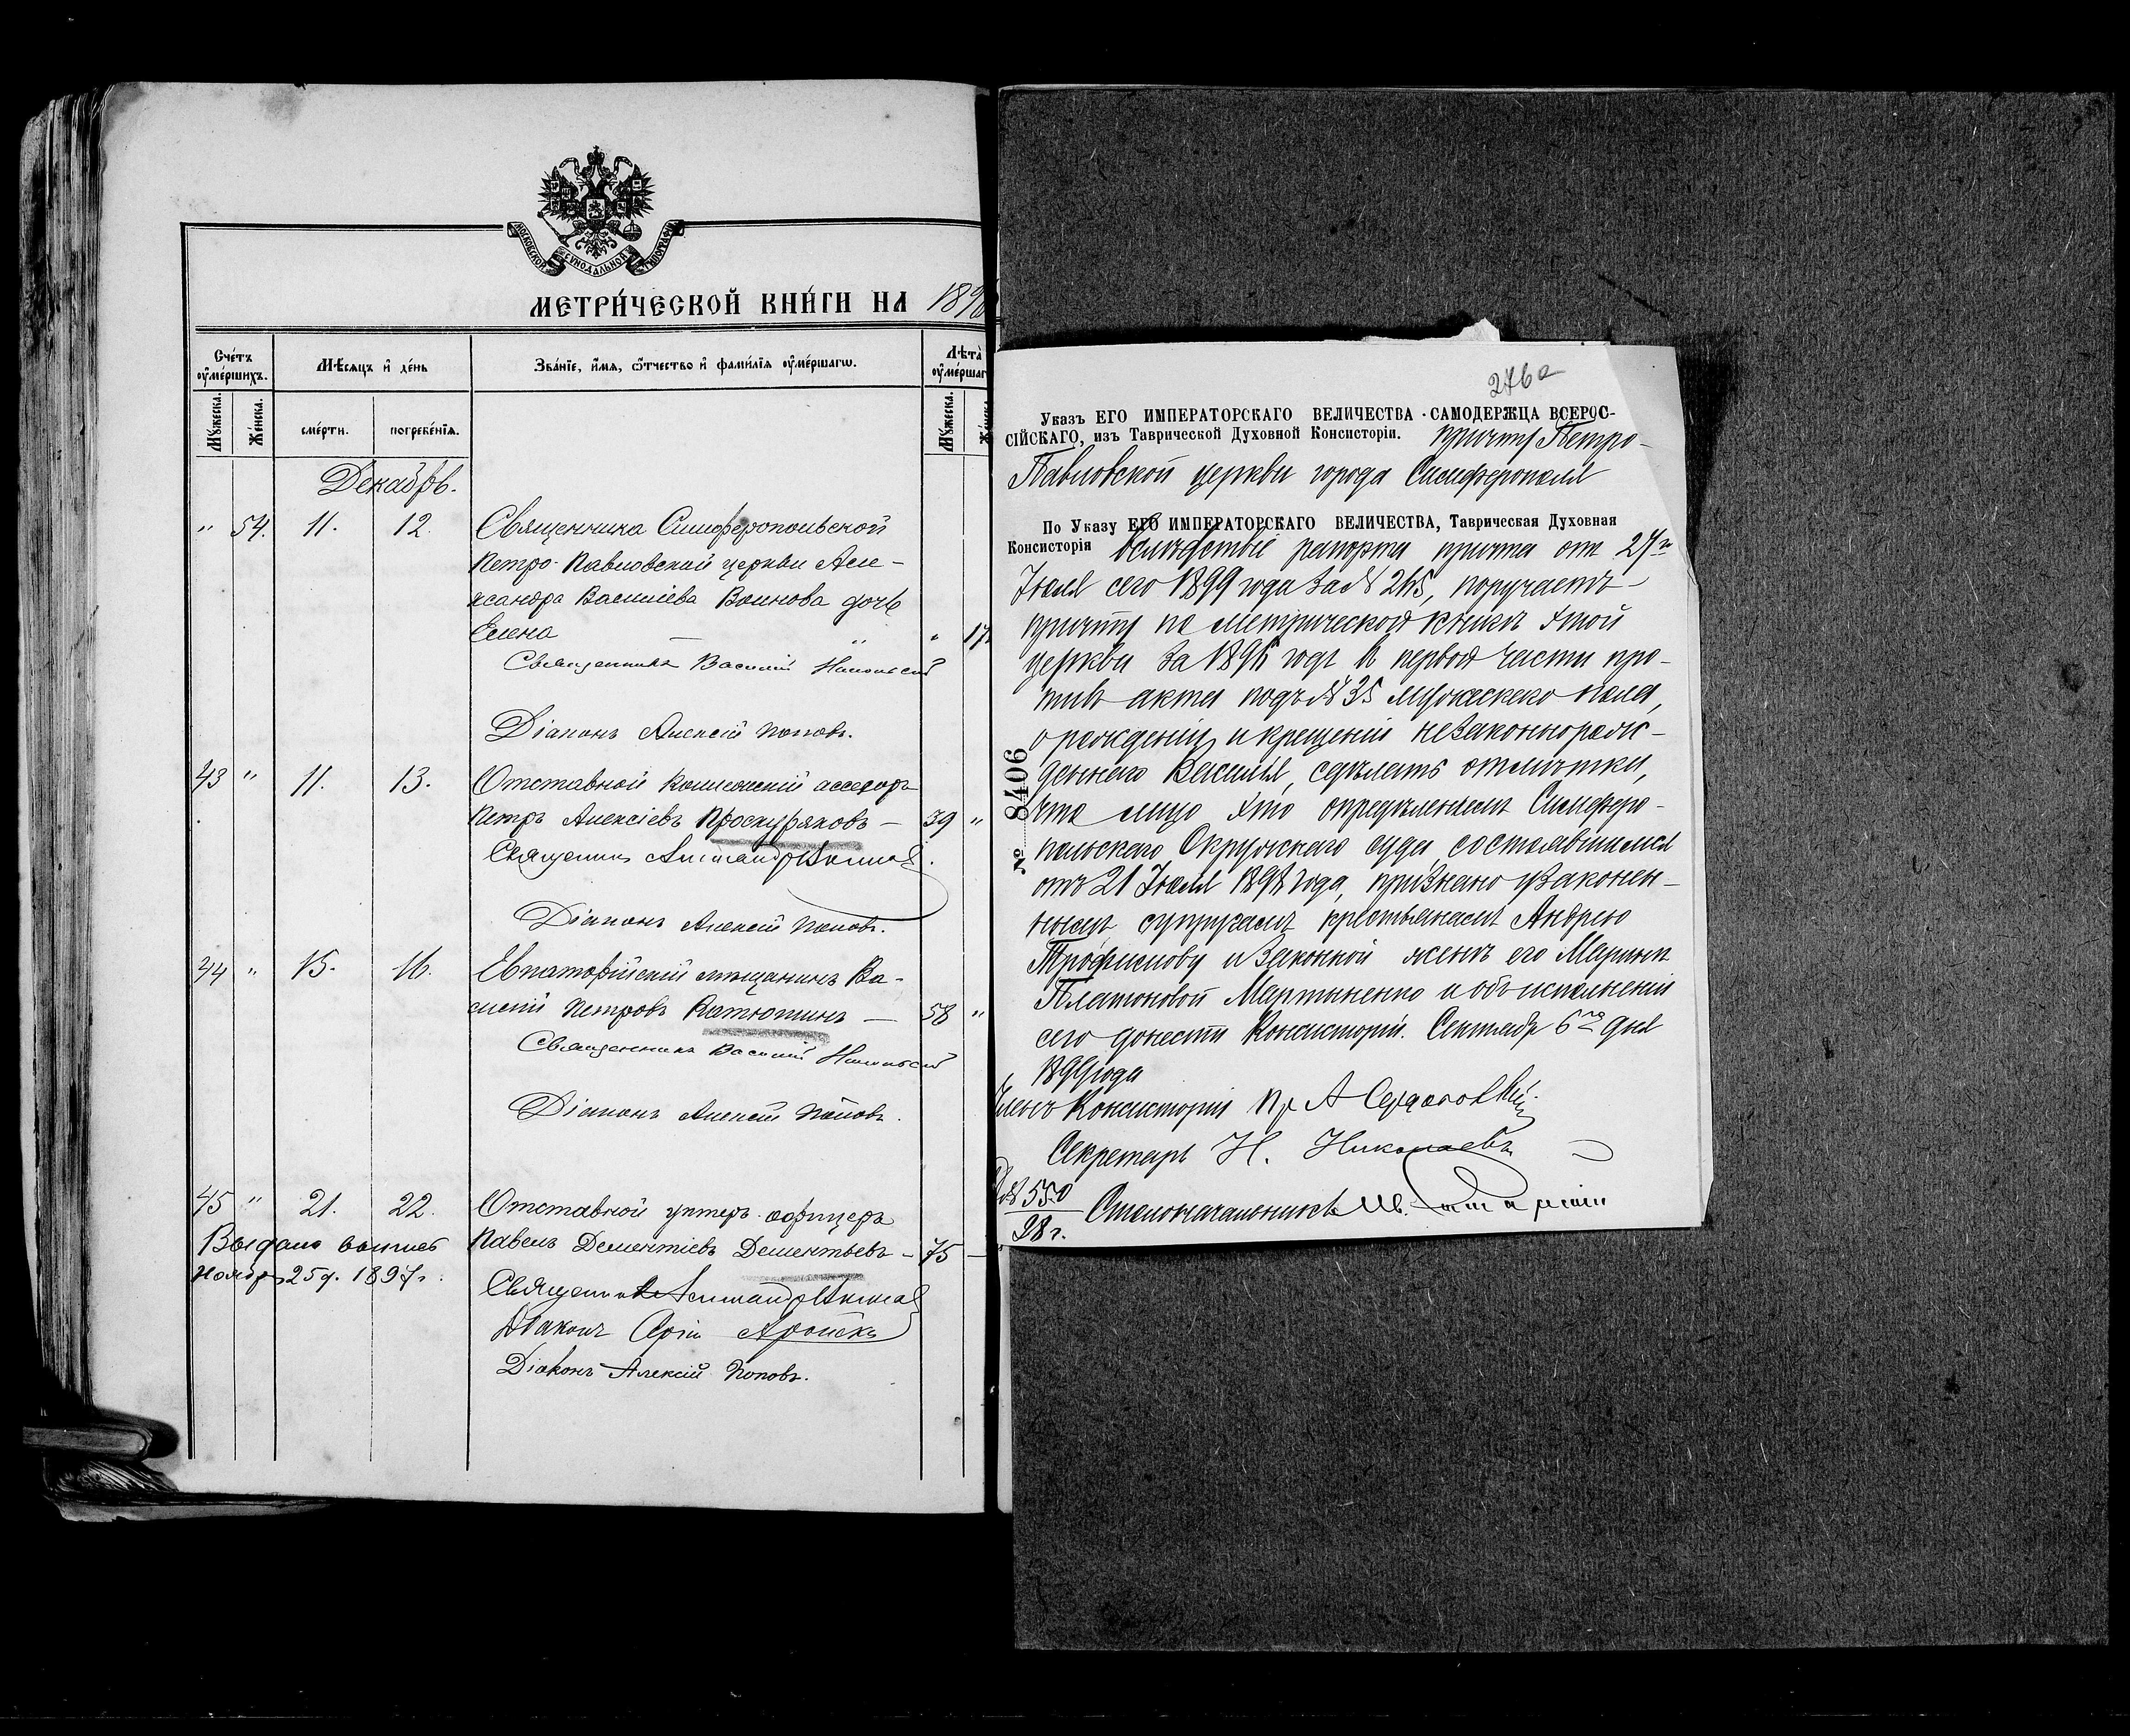 МОСКОВСКОЙ СѴНОДАЛЬНОЙ ТИПОГРАФІИ
МЕТРИ́ЧЕСКОЙ КНИ́ГИ НА 1896
Сче́тъ ᲂу҆ме́ршихъ.
Мѣсяцъ и҆ де́нь
Зва́нїе, и҆́мѧ, ѻ҆́тчество и҆ фами́лїѧ ᲂу҆ме́ршагѡ.
Лѣта̀ ᲂу҆ме́ршаг
Мꙋ́жеска.
Же́нска.
сме́рти.
погребе́нїѧ.
Мꙋ́жеска.
Же́нска
Декабрь.
" 54. 11. 12. Священника Симферопольской
Петро-Павловской церкви Але-
ксандра Васильева Воинова дочь
Елена — " " 17
Священникъ Василій Никольскій
Діаконъ Алексій Поповъ.
43 " 11. 13. Отставной Коллежскій ассесоръ
Петръ Алексіевъ Проскуряковъ — 39 "
Священникъ
Діаконъ Алексій Поповъ.
44 " 15. 16. Евпаторійскій мѣщанинъ Ва-
силій Петровъ Катютинъ — 58 "
Священникъ Василій Никольскій
Діаконъ Алексій Поповъ.
45 " 21. 22. Отставной унтеръ-офицеръ
Павелъ Дементіевъ Дементьевъ — 75 —
Выдана выпись
Ноябр 25 д. 1897 г.
Священникъ
Діаконъ
Діаконъ Алексій Поповъ.
276а
Указъ ЕГО ИМПЕРАТОРСКАГО ВЕЛИЧЕСТВА САМОДЕРЖЦА ВСЕРОС-
СІЙСКАГО, изъ Таврической Духовной Консисторіи. причту Петро-
Павловской церкви города Симферополя
По Указу ЕГО ИМПЕРАТОРСКАГО ВЕЛИЧЕСТВА, Таврическая Духовная
Консисторія вслѣдствіе рапорта причта от 27го
Іюля сего 1899 года за № 245, поручаетъ
причту по метрической книгѣ этой
церкви за 1896 годъ в первой части про-
тивъ акта подъ № 35 мужескаго пола,
о рожденіи и крещеніи незаконнорож-
деннаго Василія, сдѣлать отмѣтки,
что лицо это опредѣленіемъ Симферо-
польскаго Окружнаго суда, состоявшимся
отъ 21 Іюля 1898 года, признано узаконен-
нымъ супругами крестьянами Андрею
Трофимову и законной женѣ его Маринѣ
Платоновой Мартыненко и объ исполненіи
сего донести Консисторіи. Сентябр 6го дня
1899 года
№ 8406
Членъ Консисторіи Пр. А. Сердобольскій
Секретарь Н. Николаевъ
№ 550
98 г.
Столоначальникъ Ив.